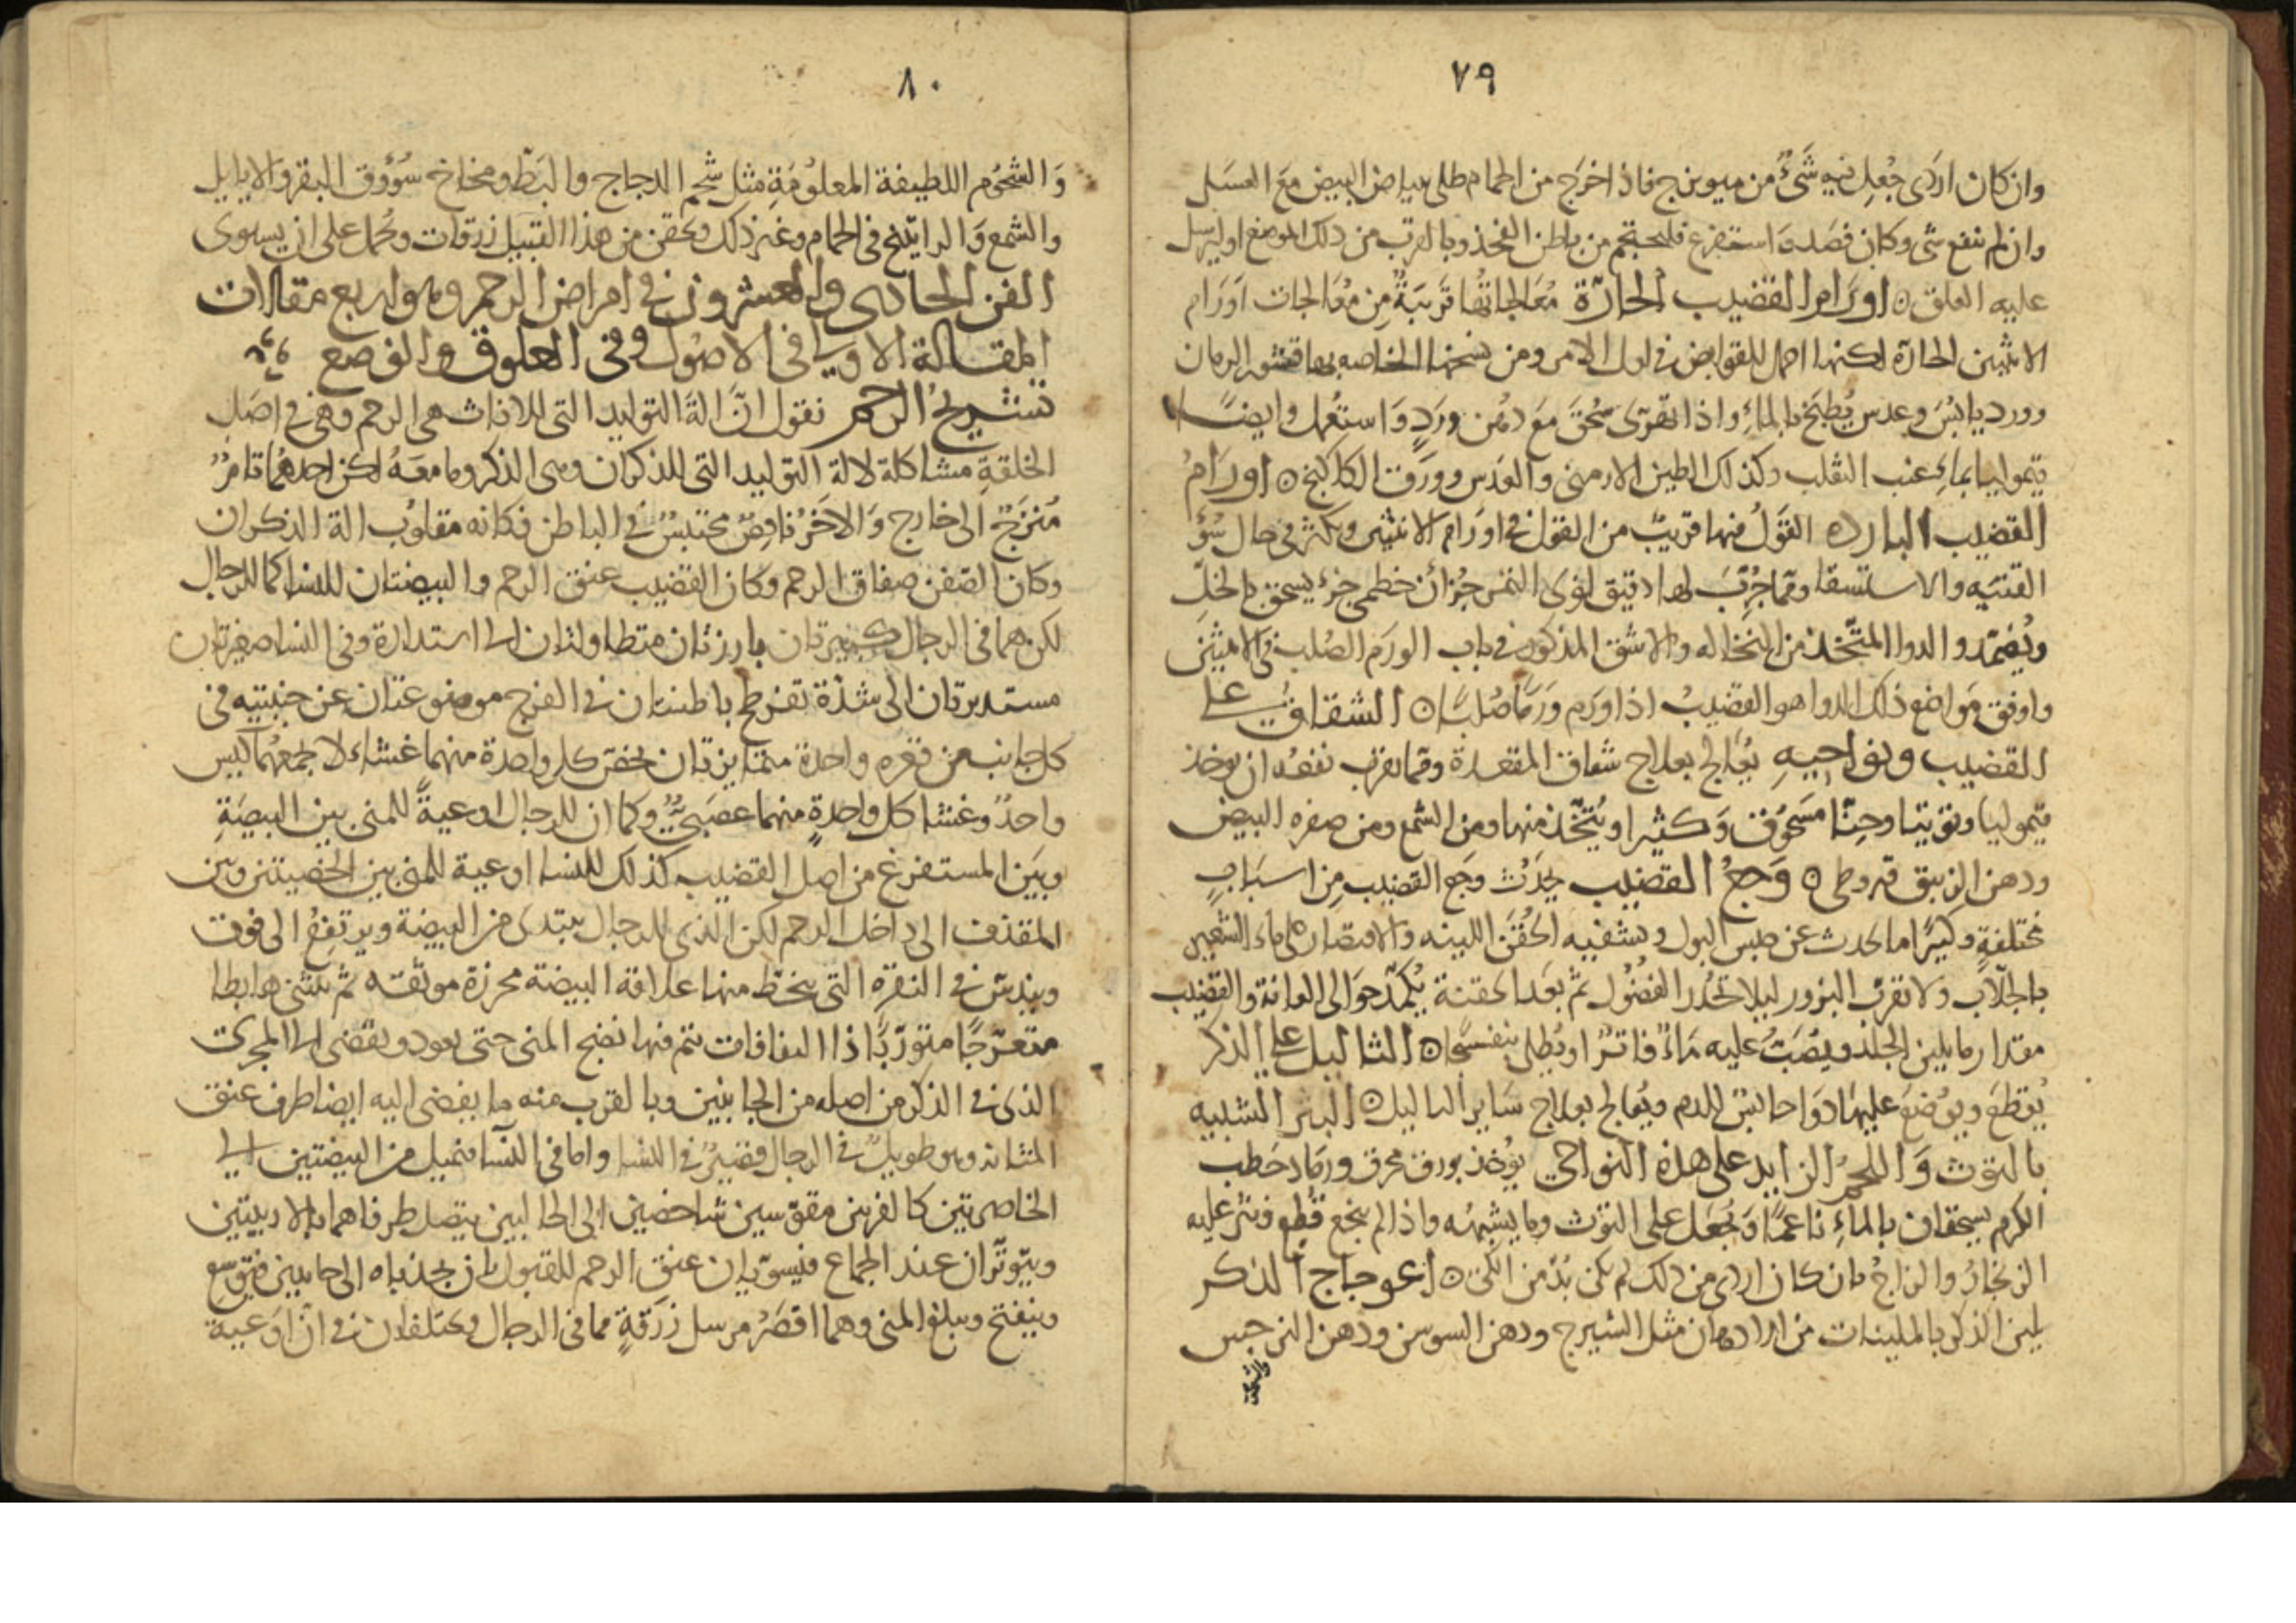 ٧٩
وان كان اردى جُعِل فيه شَىءٌ من ميويزج فاذا خرَج من الحمام طلى ببياض البيض مَعَ العسَل
وان لم ينفع شى وكان فصَد وَاستفرغ فليحتجم من باطن الفخذ وبالقرب من ذلك الموضع او ليرسل
عليه العلق ٥ اورَام القضيب الحارّة مُعَالجاتُها قَريبَةٌ مِن مُعَالجات اَورَام
الانثيين الحارّة لكنها احمل للقوابض فى اول الامر ومن نسخها الخاصه بها قشور الرمان
وورد يابسُ وعدس يُطبَخ بالماءِ واذا تهرّى سُحقَ مَعَ دهن ورَدٍ وَاستعُمل وايضًا
قيموليا بماءِ عنب الثعلب وكذلك الطين الارمنى والعَدس وورَق الكاكنج ٥ اورَامُ
القضيب البارده القَولُ فيها قريبٌ من القول فى اورَام الانثيين ويكثر فى حال سُوء
القنيَه والاستسقا وممّا جُرّبَ لها دقيق نوى التمر جُزأن خطمى جزء يسحق بالخلّ
ويُضمّد والدوا المتّخذ من النخاله والاشق المذكور فى باب الورَم الصُلب فى الانثيين
واوفق مَواضع ذلك الدوا هو القضيبُ اذا ورَم ورَمًا صُلبًا ٥ الشقاقُ على
القضيب ونواحيهِ يُعالج بعلاج شقاق المقعدة وممّا يقرب نفعُه ان يوخذ
قيموليا وتوتيا وحِنّا مَسحُوق وَكثيرا ويُتّخذ منها ومن الشمع ومن صفره البيض
ودهن الزنبق قيروطى ٥ وَجعُ القضيب يحدُث وجَع القضيب مِن اسبَابٍ
مختلفةٍ وكثيرًا ما يحدث عن حبس البول ويشفيه الحُقَن اللينه والاقتصار على ماء الشعير
بالجلّاب ولا تقرب البزور ليلا تحُدر الفضُول ثم بعَد الحقنة يُكمّد حوَالى العانة والقضيب
مقدار ما يلين الجلد ويصَبُّ عليه مَاءٌ فاترٌ او يُطلى بنفسجًا ٥ الثاليل على الذكر
يُقطعَ ويوُضعَ عليها دَوَا حابسُ للدم ويُعالج بعلاج سَاير الثاليل ٥ البثر الشبيه
بالتوث وَاللحمُ الزايد على هذه النواحى يوُخذ بورق محرق ورمَاد حَطب
الكرم يسحقان بالماءِ ناعمًا وَيُجعَل على التوْث وما يشبهُه واذا لم ينجع قُطِع ونثر عليه
الزنجارُ والزاجُ فان كان اردى من ذلك لم يكن بُدّ من الكىّ ٥ اعوجاج الذكر
يلين الذكر بالملينات من الادهان مثل الشيرج ودهن السوسن ودهن النرجس
والشحوم
٨٠
وَالشحُوم اللطيفة المعلوُمَةِ مثل شحِم الدجاج والبَطّ ومخاخ سُوُوق البقر والايايل
والشمع وَالراتينج فى الحمام وغير ذلك ويحقن من هذا القبيل زرقات ويحُمل على ان يستوى
الفن الحادى والعشرون فى امراض الرحم وهو اربع مقالات
المقالة الاولى فى الاصُول وفى العلوق والوضع
تشريحُ الرحم نقول انَّ الةَ التوليد التى للاناث هى الرحم وهى فى اصَل
الخلقةِ مشاكلة لالة التوليد التى للذكران وهى الذكر وما معَهُ لكن احدهُما تامٌ
مُبرَزٌ الى خارج وَالاخَرُ ناقِصٌ محتبسٌ فى الباطن فكانه مقلوُب الة الذكران
وكان الصَفن صفاق الرحم وكان القضيب عنق الرحم والبيضتان للنسا كما للرجال
لكن هما فى الرجال كبيرتان بارزتان متطاولتان الى استدارة وفى النسا صغيرتان
مستديرتان الى شدّة تفرطح باطنتان فى الفرج موضوعتان عن جنبتيه فى
كل جانب من قعره واحدة متمايزتان يختصّ كل واحدة منهما غشاء لا يجمعهُما كيس
واحدٌ وغشا كل واحدةٍ منهما عصَبىٌّ وكما ان للرجال اوعيةً للمنى بين البيضَةِ
وبيَن المستفرغ من اصل القضيب كذلك للنسا اوعية للمنى بين الخصيتين وبين
المقذف الى داخل الرحم لكن الذى للرجال يبتدى من البيضة ويرتفِعُ الى فوق
ويندسّ فى النقره التى ينحَطّ منها علاقة البيضة محرزة موثّقه ثم ينثنى هابطا
متعرّجًا متورّبًا ذا التفافات يتم فيها نضج المنى حتى يعود ويفضى الى المجرى
الذى فى الذكر من اصله من الجانبين وبالقرب منه ما يفضى اليه ايضا طرف عنق
المثانه وهو طويلٌ فى الرجال قصيرٌ فى النسا واما فى النسا فيميل من البيضتين الى
الخاصرتين كالقرنين مقوّسين شاخصين الى الحالبين يتصل طرفاهما بالاربيتين
ويتوتّران عند الجماع فيسوّيان عنق الرحم للقبول بان يجذباه الى جانبين فيتوسع
وينفتح ويبلغ المنى وهما اقصَرُ مرسل زرَقةٍ مما فى الرجال ويختلفان فى انّ اوَعية